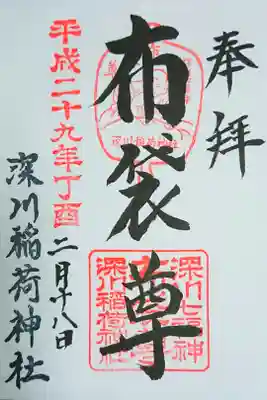 奉拝
布袋尊
深川七福神
深川稲荷神社
平成二十九年丁酉
二月十八日
深川稲荷神社